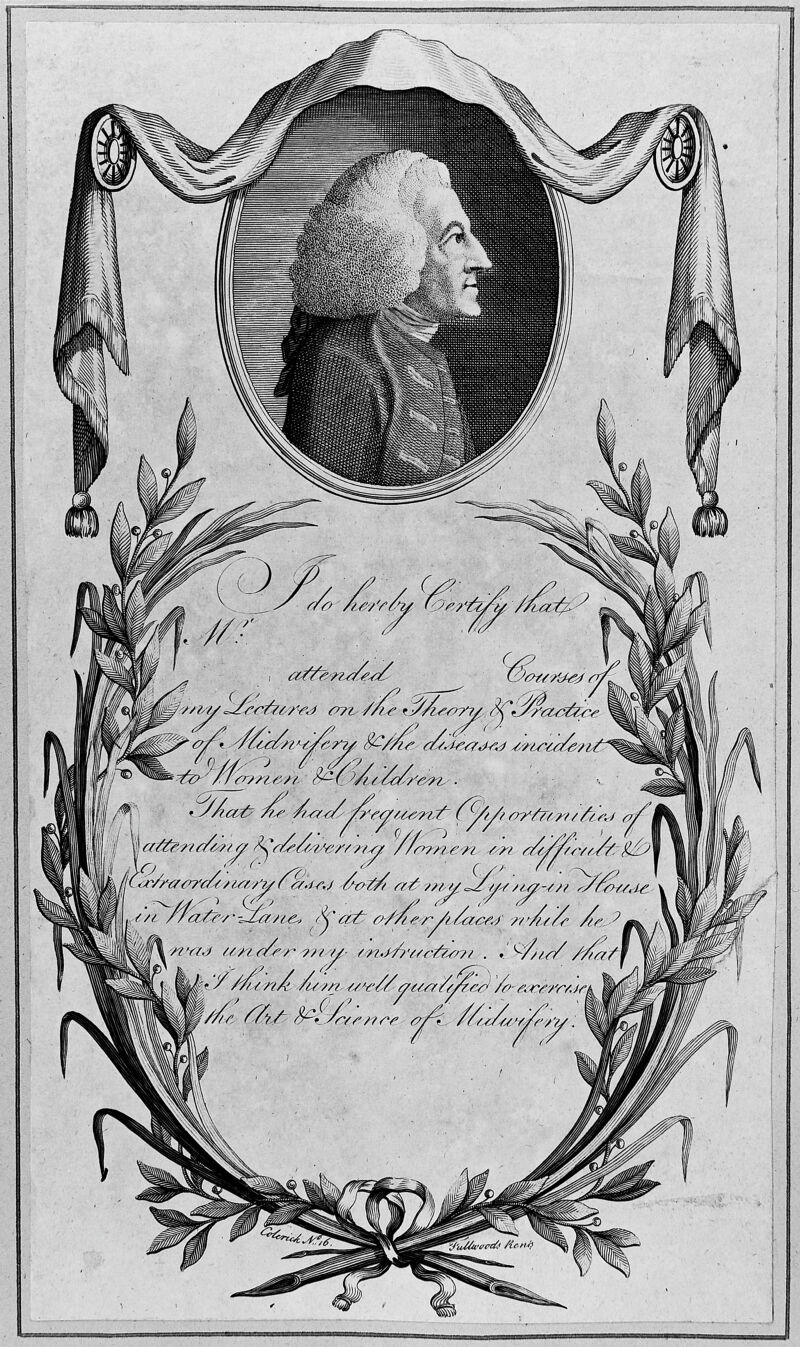 I do hereby Certify that
Mr.
attended Courses of
my Lectures on the Theory & Practice
of Midwifery & the diseases incident
to Women & Children.
That he had frequent Opportunities of
attending & delivering Women in difficult &
Extraordinary Cases both at my Lying-in House
in Water-Lane, & at other places while he
was under my instruction. And that
I think him well qualified to exercise
the Art & Science of Midwifery.
Colerich No. 16. Fullwoods Rents